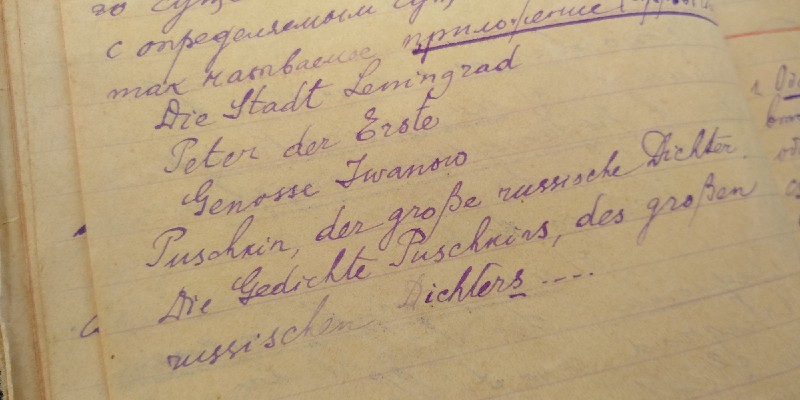 го сущ
с определяемым сущ
так называемое приложение
Die Stadt Leningrad
Peter der Erste
Genosse Iwanow
Puschkin, der große russische Dichter.
Die Gedichte Puschkins, des großen
russischen Dichters ....